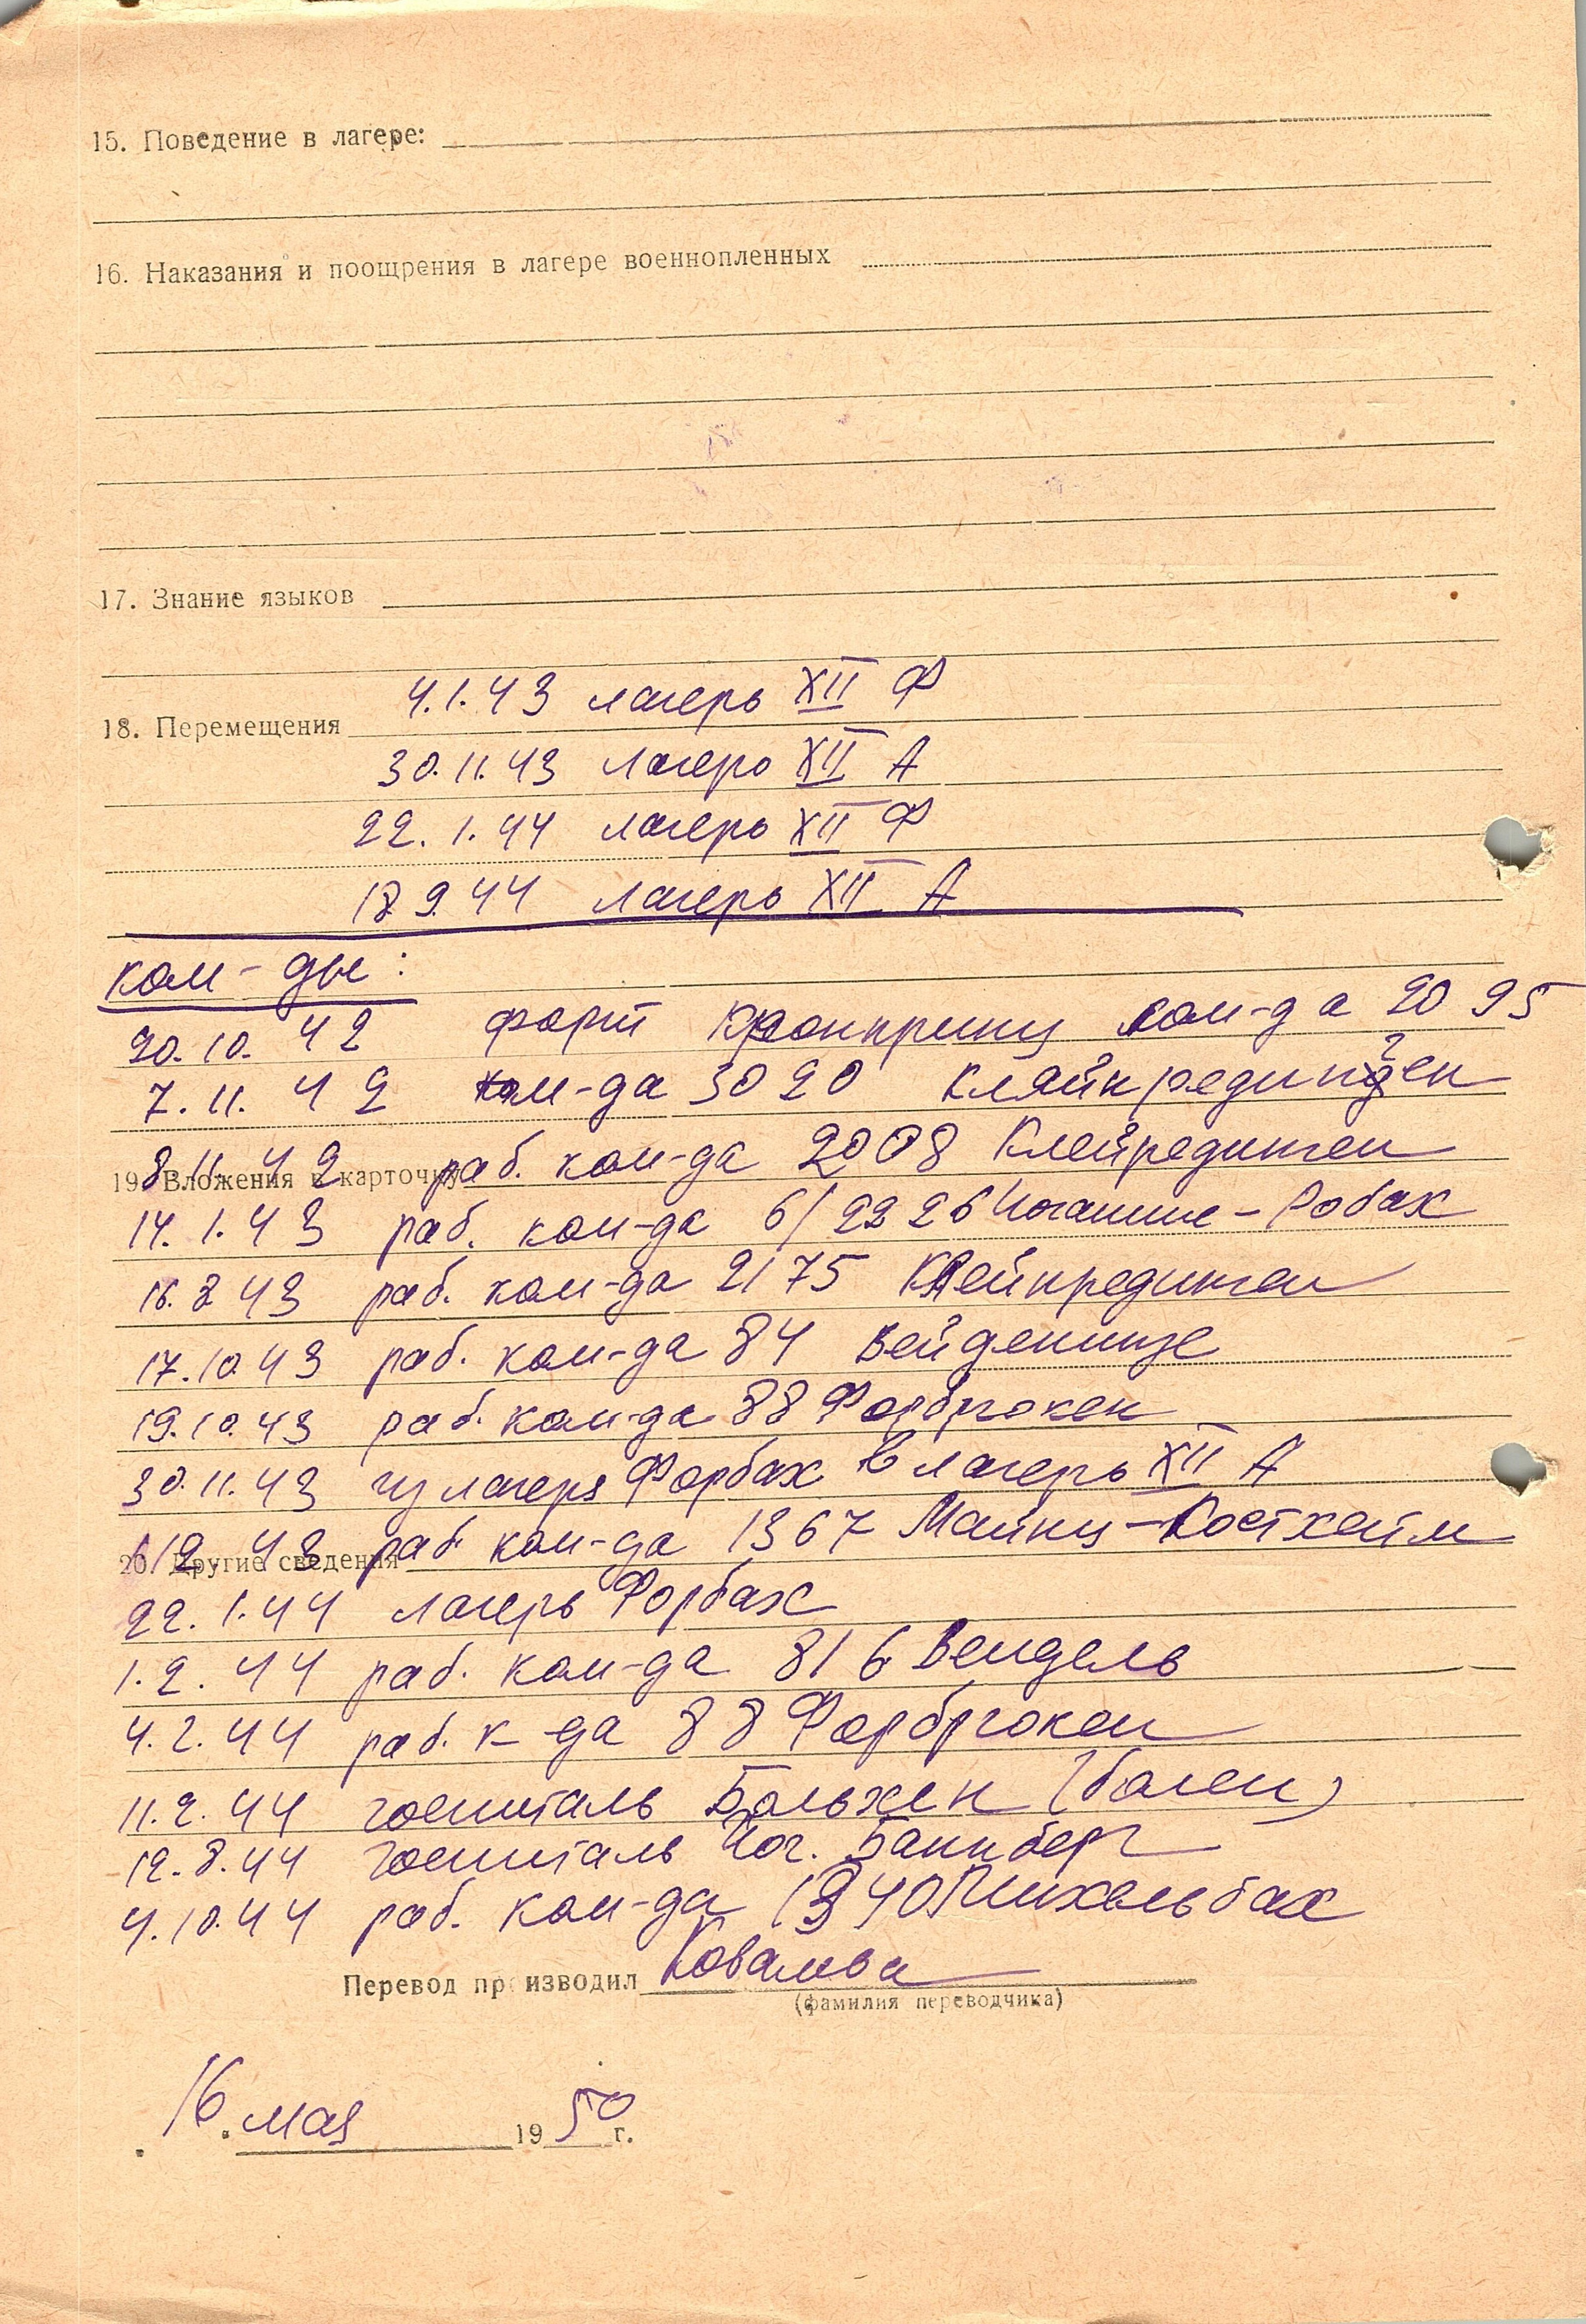 15. Поведение в лагере:
16. Наказания и поощрения в лагере военнопленных
17. Знание языков
4.1.43 лагерь XII Ф
18. Перемещения
30.11.43 лагерь XII А
22.1.44 лагерь XII Ф
18.9.44 лагерь XII А
ком-ды:
20.10.42 форт Кронпринц ком-да 2095
7.11.42 ком-да 3020 Кляйнрединген
8.11.42 раб. ком-да 2008 Клейрединген
19. Вложения в карточку
14.1.43 раб. ком-да 6/2226 Иоганнис-Робах
16.8.43 раб. ком-да 2175 Клейнрединген
17.10.43 раб. ком-да 84
19.10.43 раб. ком-да 88 Форбрюкен
30.11.43 из лагеря Форбах в лагерь XII А
раб. ком-да 1367 Майнц-Костхейм
20. Другие сведения
22.1.44 лагерь Форбах
1.2.44 раб. ком-да 816 Вендель
4.2.44 раб. к-да 88 Форбрюкен
11.2.44 госпиталь Больхен (болен)
12.8.44 госпиталь Иог. Баннберг
4.10.44 раб. ком-да
Перевод производил
(фамилия переводчика)
16 мая 1950 г.